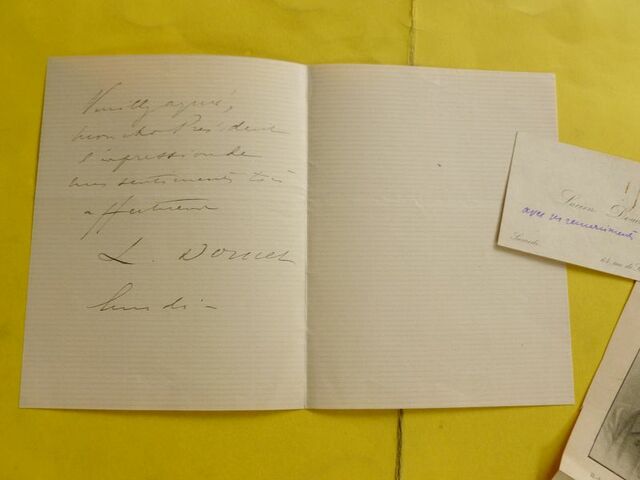 Veuillez agréer,
mon cher Président
l'expression de
mes sentiments très
affectueux
L. Doucet
lundi -
Lucien Douc
avec ses remerciements
Samedi